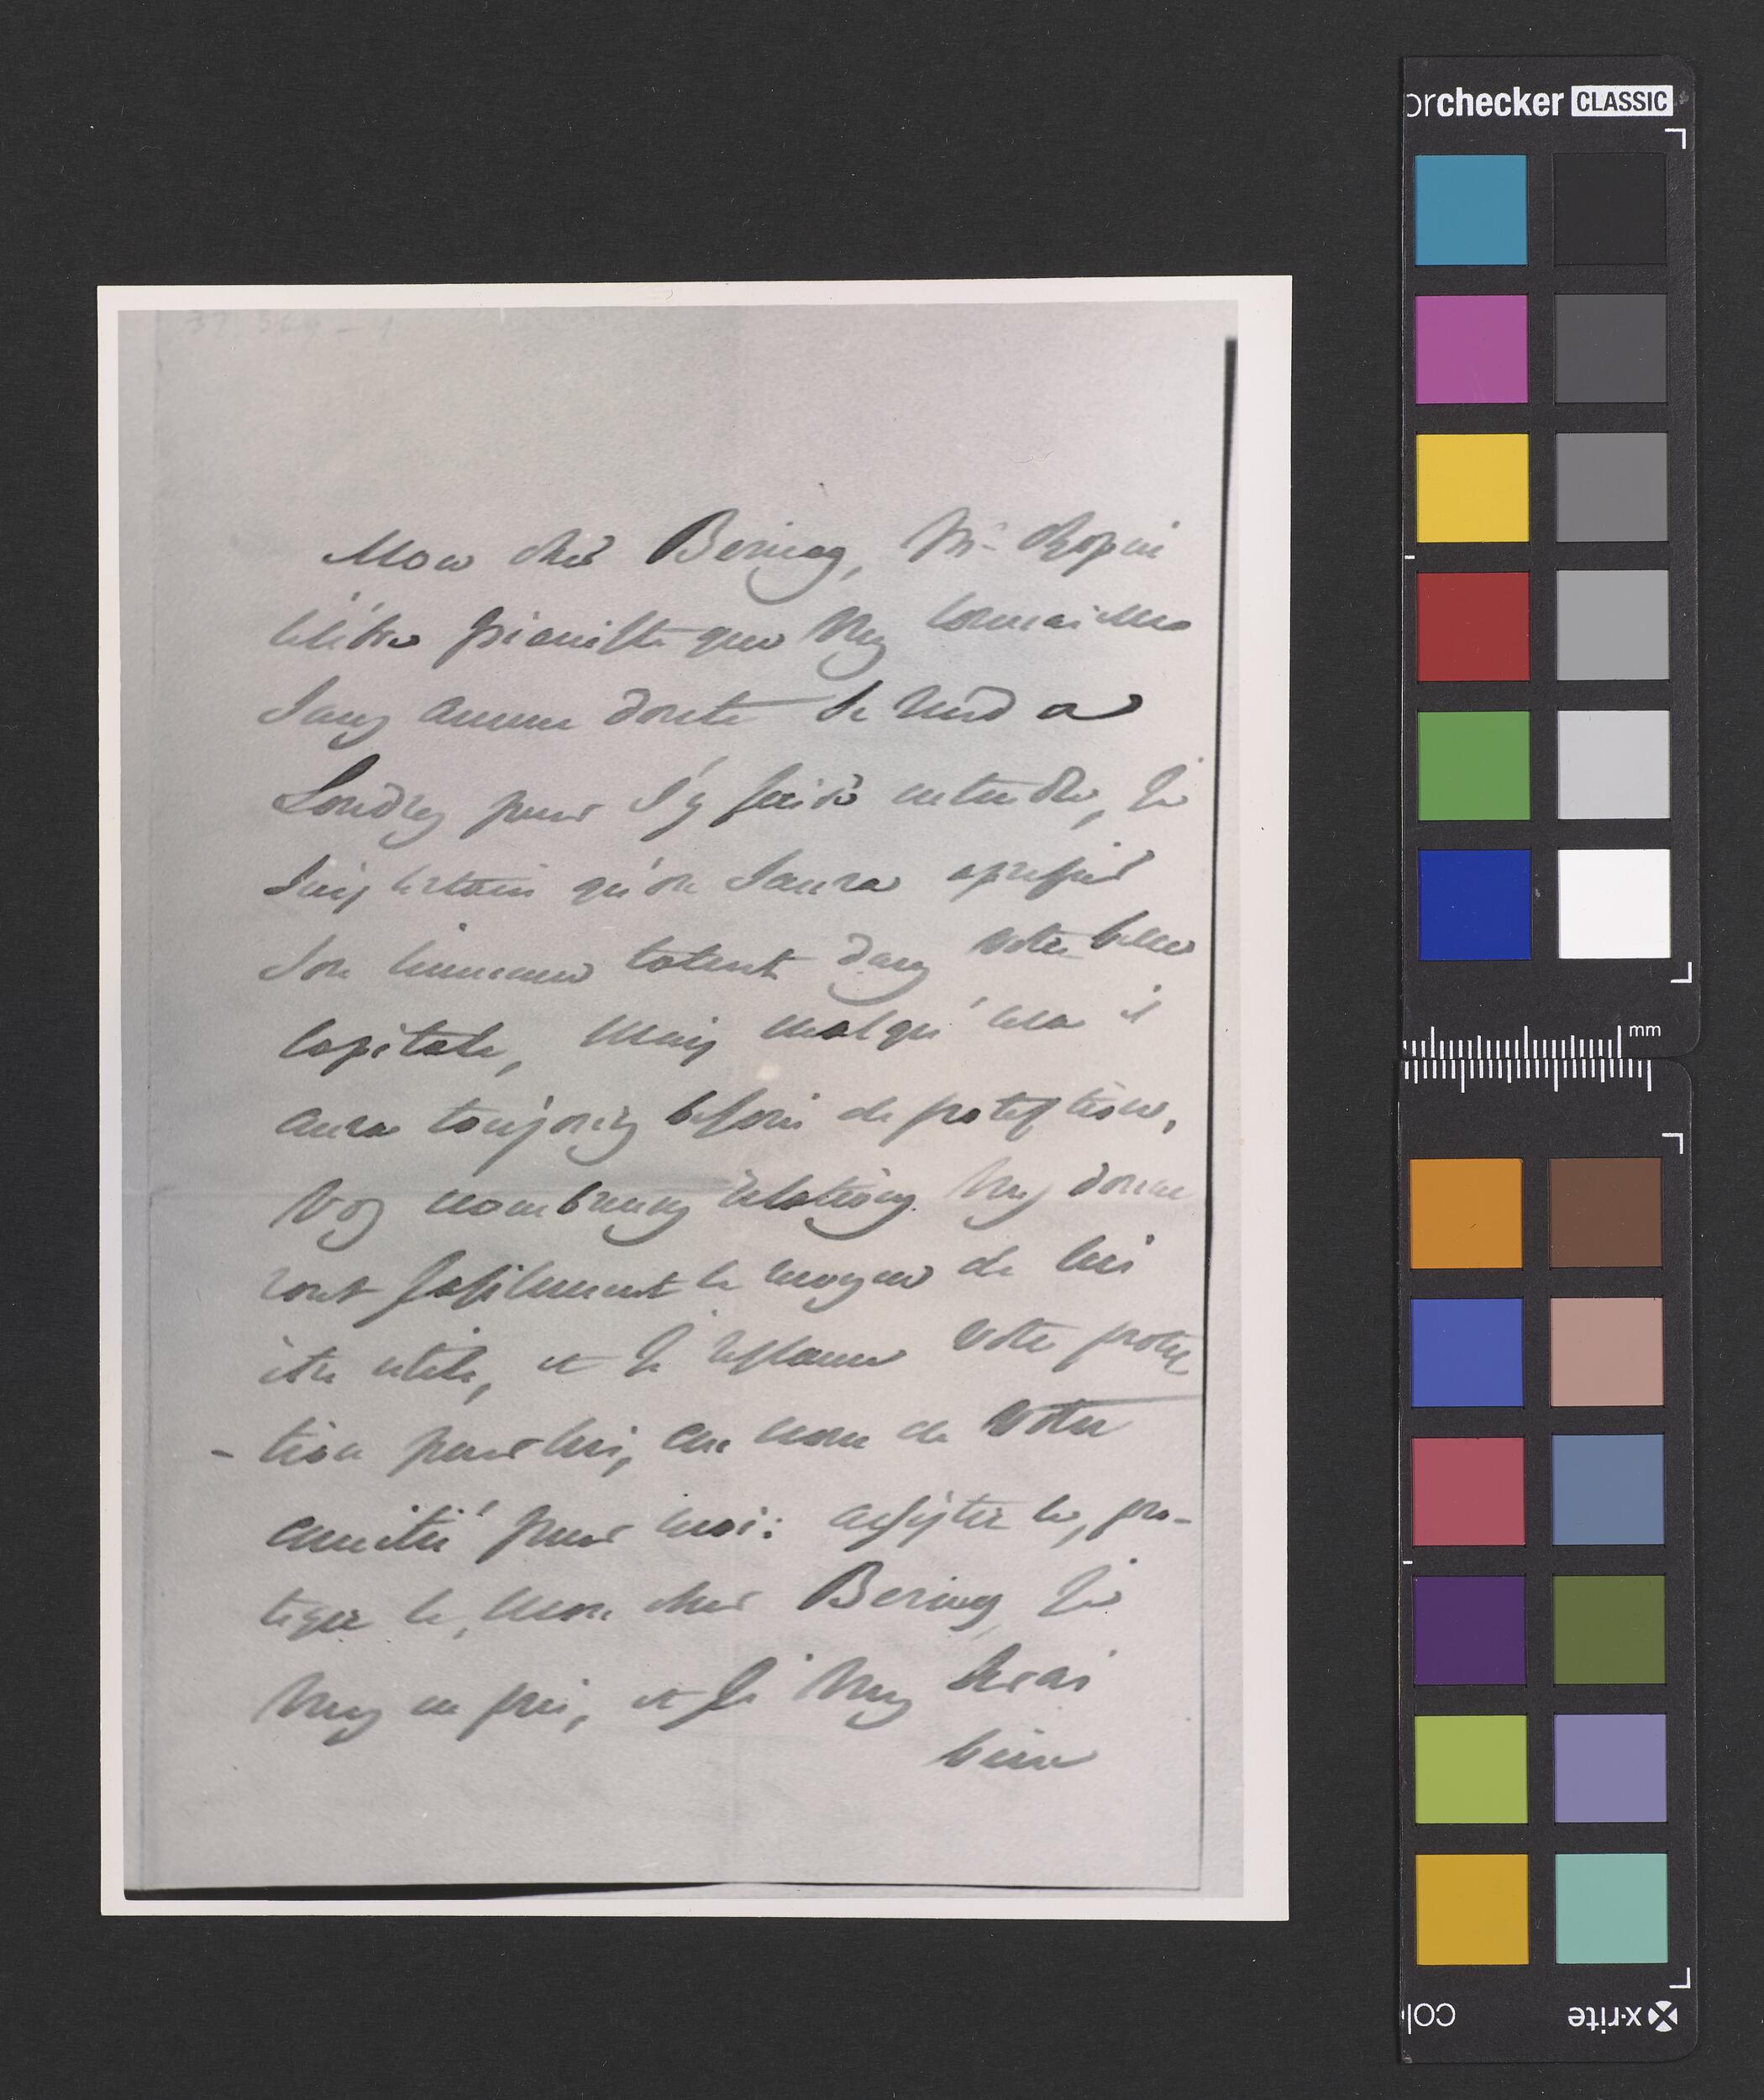 37.569-1
Mon cher Bering, Mr Chopin
célèbre pianiste que vous connaissez
sans aucune doute se rend a
Londres pour s'y faire entendre, je
suis certain qu'on saura apressier
son talent dans votre belle
capitale, mais malgré cela il
aura toujours besoin de protection,
vos nombreuses relations vous donne
ront fasilement le moyen de lui
être utile, et je resslame votre protec
-tion pour lui, au nom de votre
amitié pour moi: assistez le, pro-
tegez le, mon cher Bering, je
vous en prie, et je vous serai
bien
orchecker CLASSIC
mm
x-rite
col